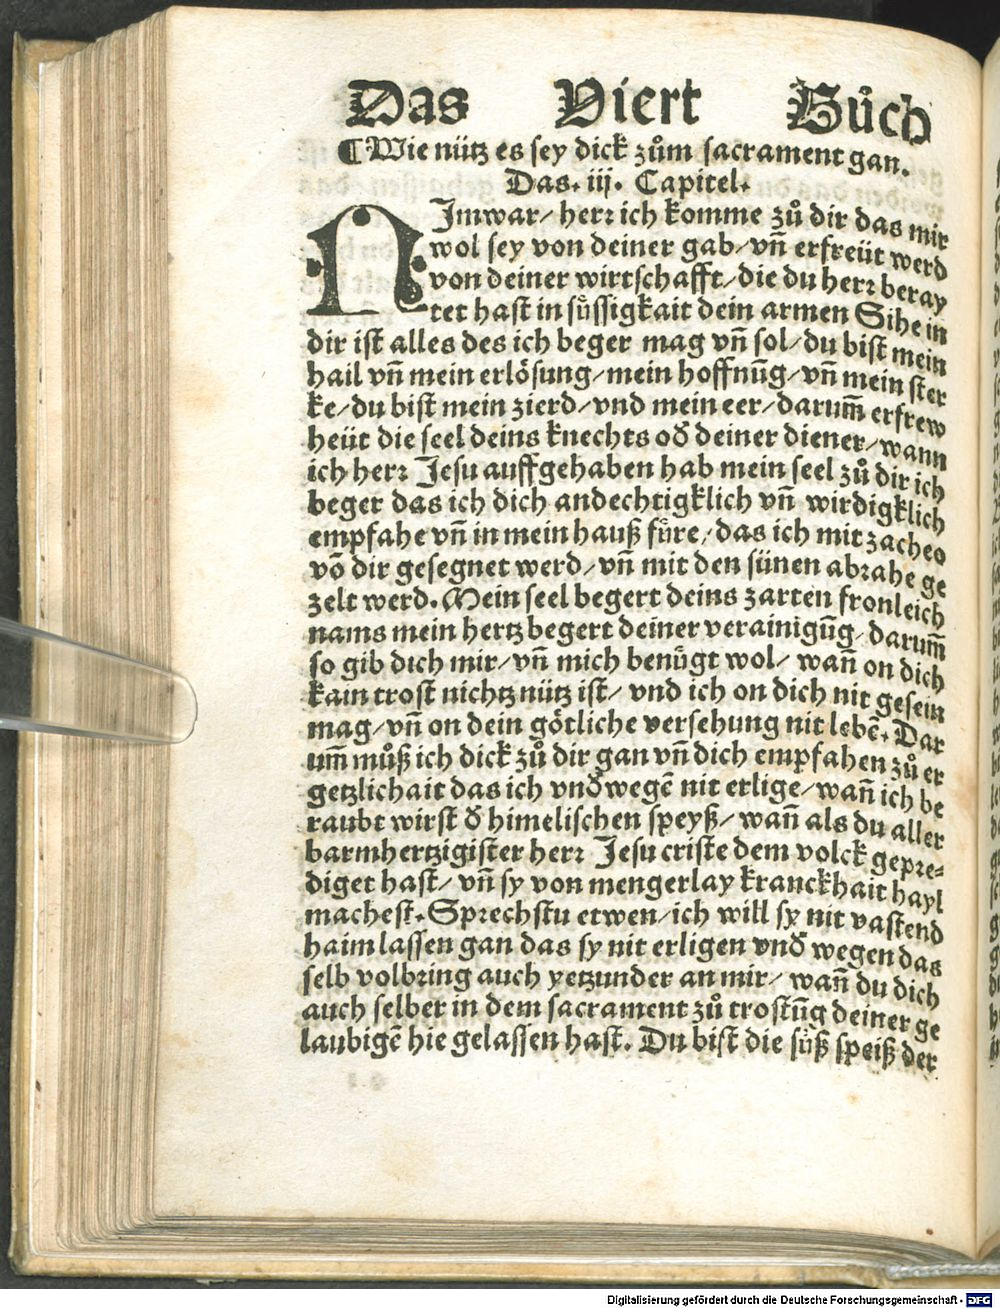 Das Viert Bůch
¶ Wie nütz es sey dick zům sacrament gan.
Das. iij. Capitel.
NImwar/ herꝛ ich komme zů dir das mir
wol sey von deiner gab/ vñ erfreüt werd
von deiner wirtschafft/ die du herꝛ beray
tet hast in sůssigkait dein armen Sihe in
dir ist alles des ich beger mag vñ sol/ du bist mein
hail vñ mein erlösung/ mein hoffnũg/ vñ mein ster
ke/ du bist mein zierd/ vnd mein eer/ darum̃ erfrew
heüt die seel deins knechts oð deiner diener/ wann
ich herꝛ Jesu auffgehaben hab mein seel zů dir ich
beger das ich dich andechtigklich vñ wirdigklich
empfahe vñ in mein hauß fůre/ das ich mit zacheo
võ dir gesegnet werd/ vñ mit den sünen abꝛahe ge
zelt werd. Mein seel begert deins zarten fronleich
nams mein hertz begert deiner verainigũg/ darum̃
so gib dich mir/ vñ mich benůgt wol/ wañ on dich
kain trost nichtz nütz ist/ vnd ich on dich nit gesein
mag/ vñ on dein götliche versehung nit lebẽ. Dar
um̃ můß ich dick zů dir gan vñ dich empfahen zů er
getzlichait das ich vnðwegẽ nit erlige/ wañ ich be
raubt wirst ð himelischen speyß/ wañ als du aller
barmhertzigister herꝛ Jesu criste dem volck gepꝛe⸗
diget hast/ vñ sy von mengerlay kranckhait hayl
machest. Spꝛechstu etwen/ ich will sy nit vastend
haim lassen gan das sy nit erligen vnð wegen das
selb volbꝛing auch yetzunder an mir/ wañ du dich
auch selber in dem sacrament zů trostũg deiner ge
laubigẽ hie gelassen hast. Du bist die sůß speiß der
Digitalisierung gefördert durch die Deutsche Forschungsgemeinschaft - DFG